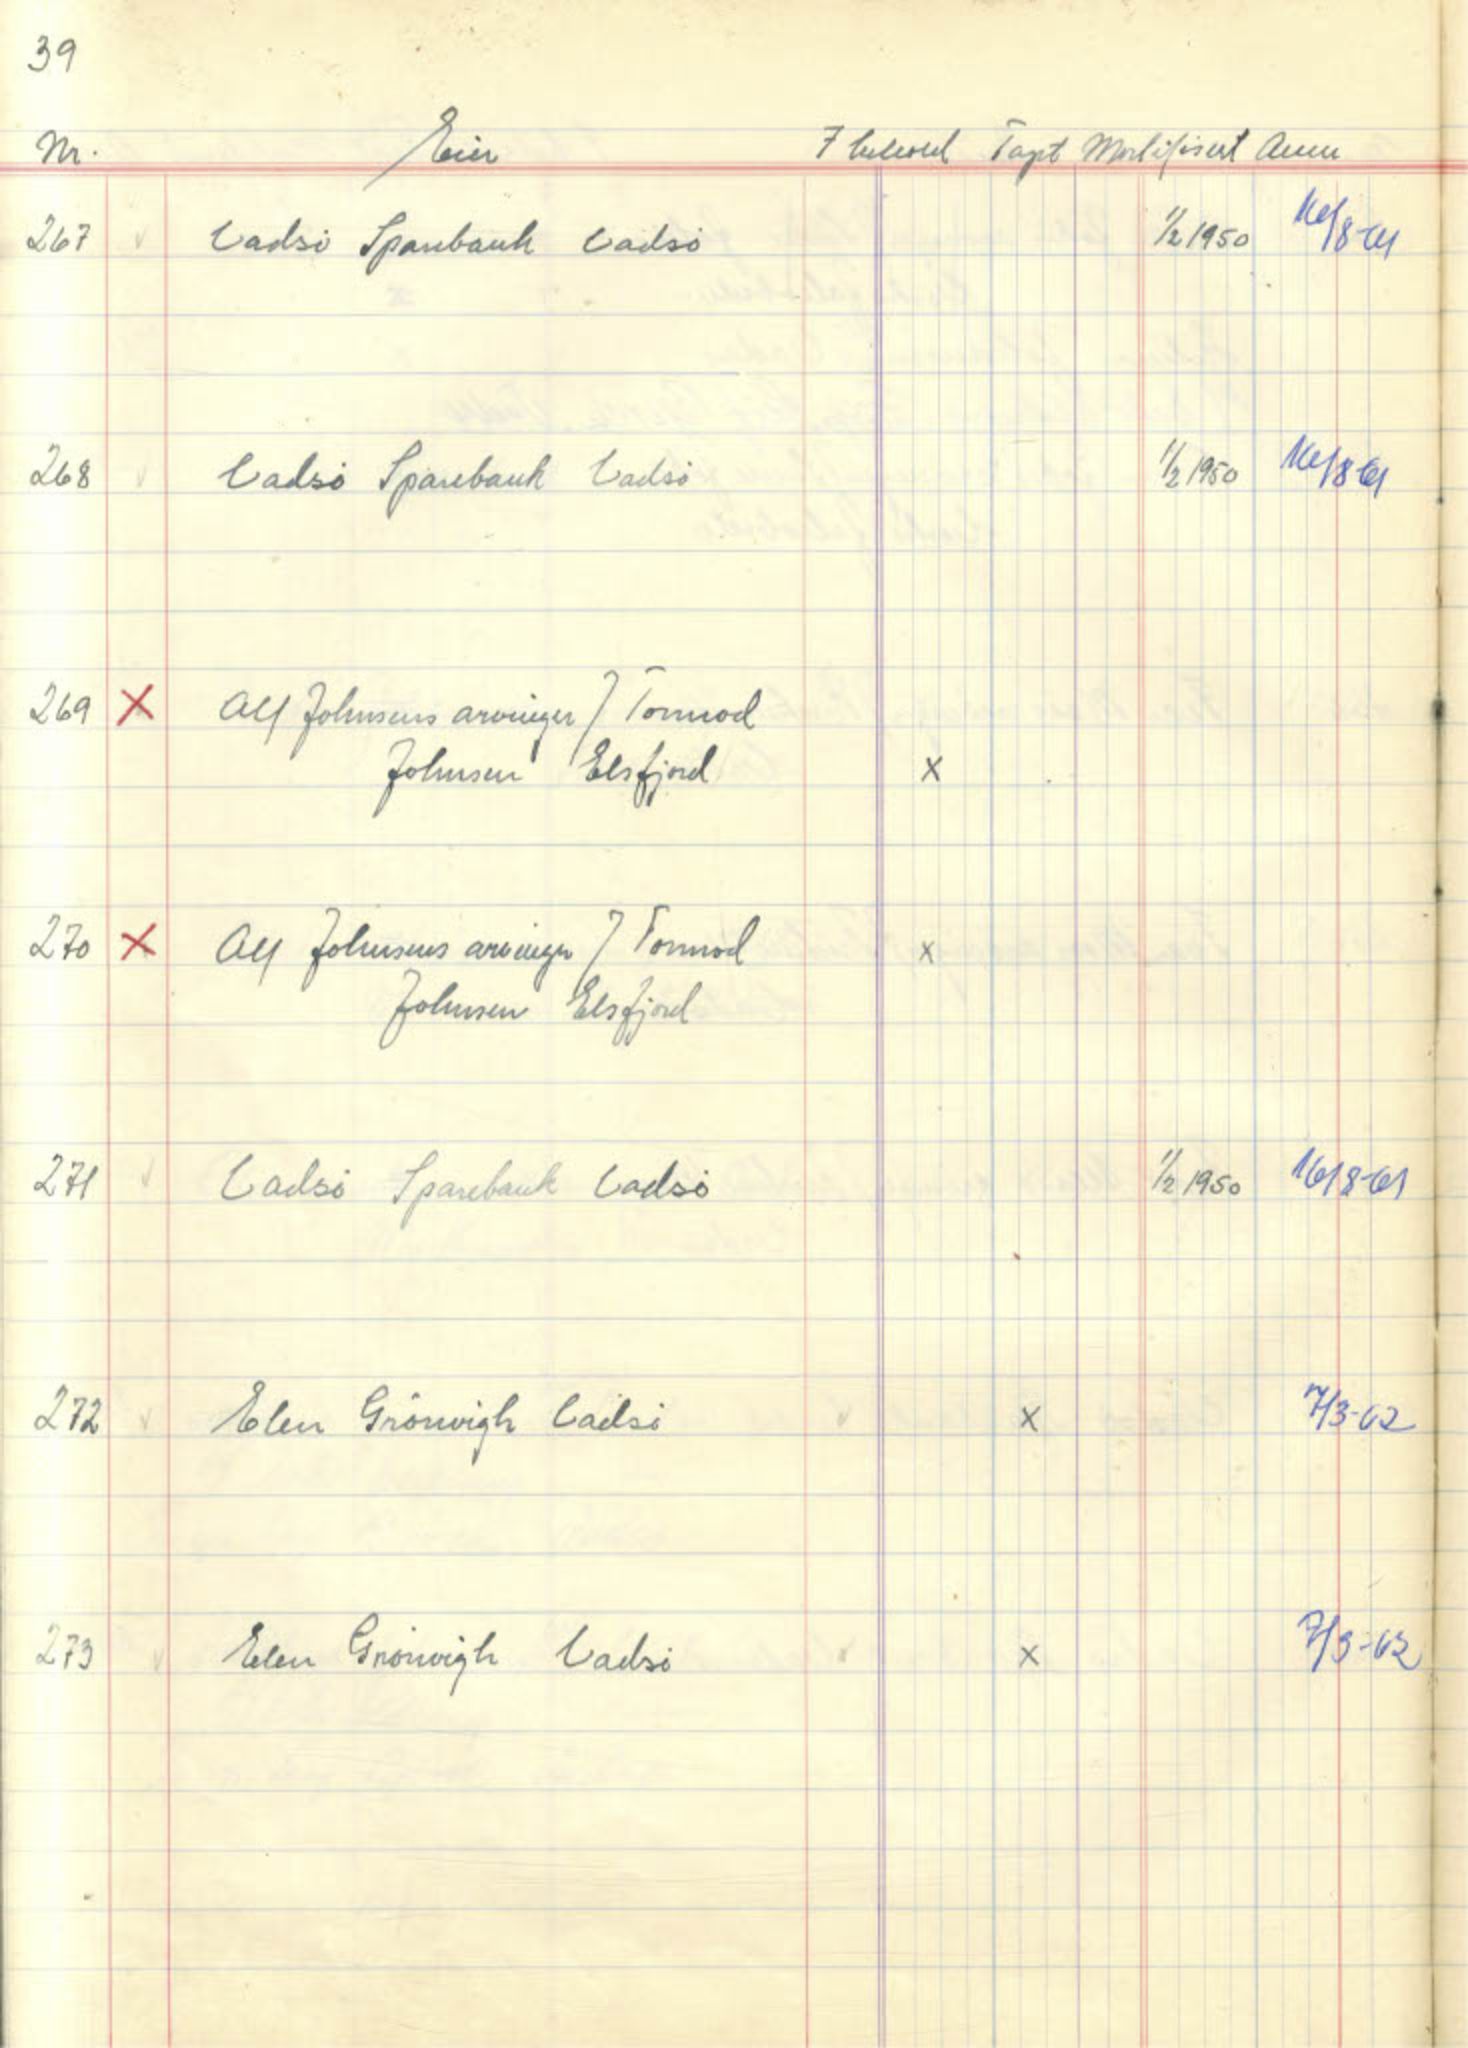 39
Nr. Eier I behold Tapt Mortifisert Ann
267 Vadsø Sparebank Vadsø 1/2 1950 16/8-61
268 Vadsø Sparebank Vadsø 1/2 1950 16/8-61
269 X Alf Johnsens arvinger / Tormod
Johnsen Elsfjord x
270 X Alf Johnsens arvinger / Tormod x
Johnsen Elsfjord
271 Vadsø Sparebank Vadsø 1/2 1950 16/8-61
272 Elen Grönvigh Vadsø x 7/3-62
273 Elen Grönvigh Vadsø x 7/3-62